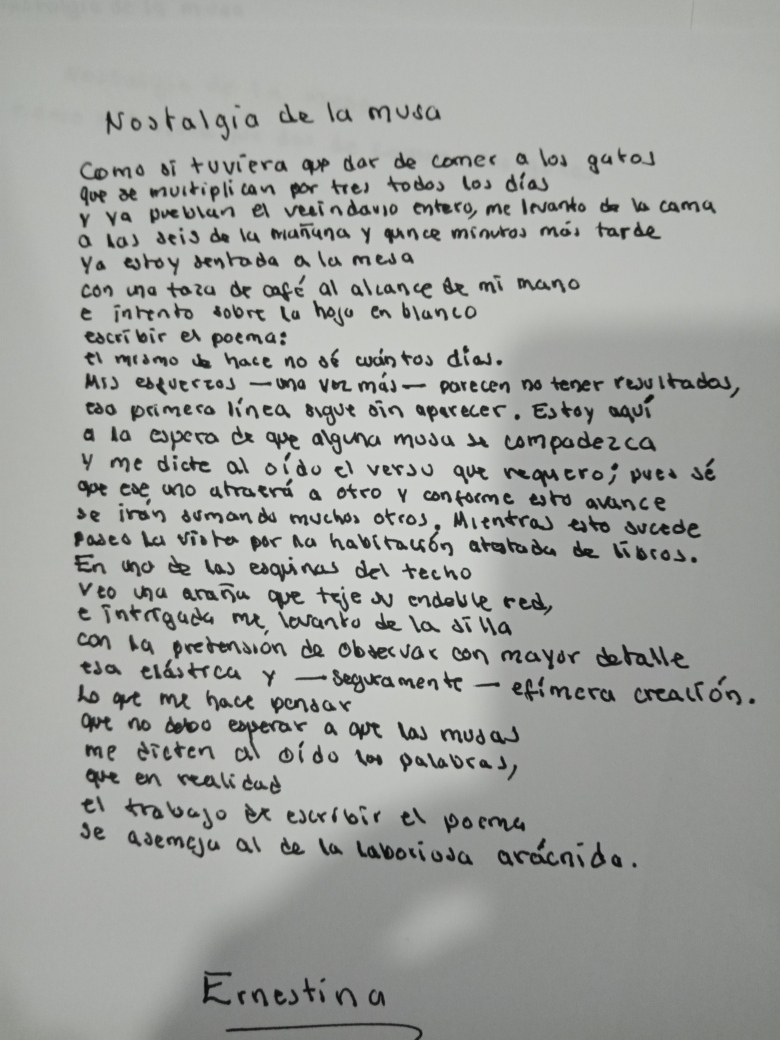 Nostalgia de la musa
Como si tuviera que dar de comer a los gatos
que se multiplican por tres todos los días
y ya pueblan el vecindario entero, me levanto de la cama
a las seis de la mañana y quince minutos más tarde
ya estoy sentada a la mesa
con una taza de café al alcance de mi mano
e intento sobre la hoja en blanco
escribir el poema:
el mismo de hace no sé cuántos días.
Mis esfuerzos —una vez más— parecen no tener resultados,
esa primera línea sigue sin aparecer. Estoy aquí
a la espera de que alguna musa se compadezca
y me dicte al oído el verso que requiero; pues sé
que ese uno atraerá a otro y conforme esto avance
se irán sumando muchos otros. Mientras esto sucede
paseo la vista por la habitación atestada de libros.
En una de las esquinas del techo
veo una araña que teje su endeble red,
e intrigada me levanto de la silla
con la pretensión de observar con mayor detalle
esa elástica y —seguramente— efímera creación.
Lo que me hace pensar
que no debo esperar a que las musas
me dicten al oído las palabras,
que en realidad
el trabajo de escribir el poema
se asemeja al de la laboriosa arácnida.
Ernestina